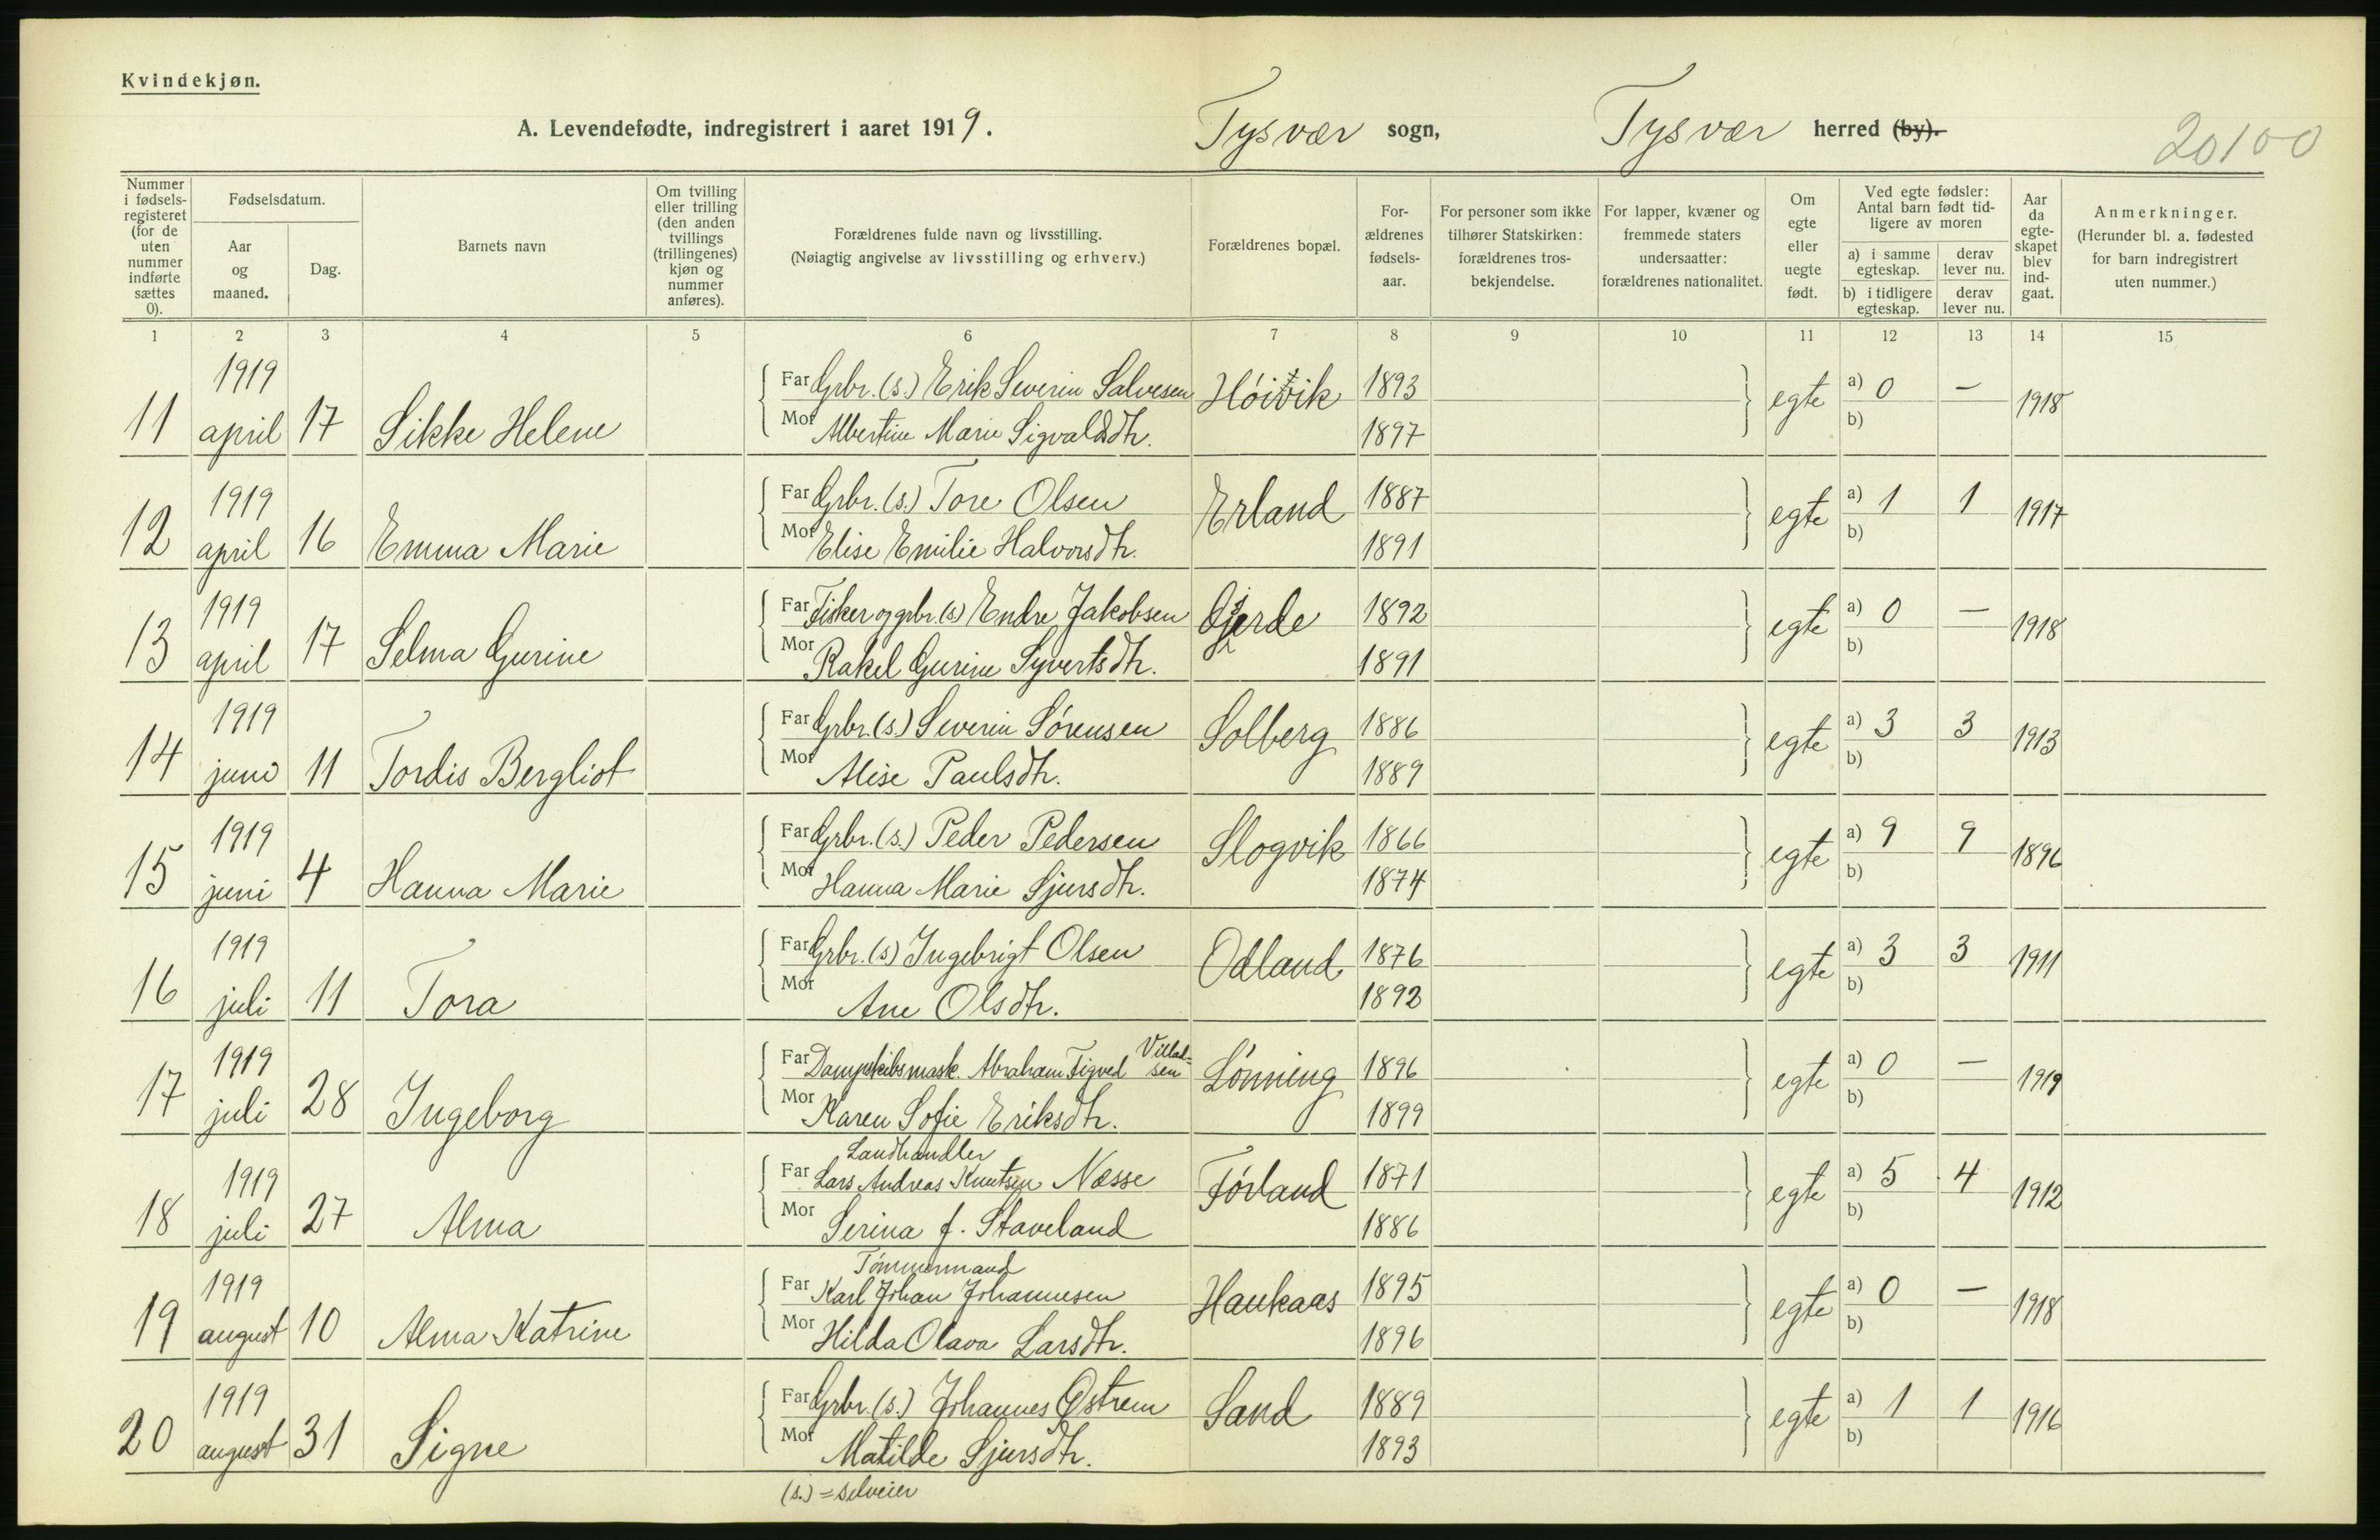 Kvindekjøn.
A. Levendefødte, indregistrert i aaret 1919. Tysvær sogn, Tysvær herred (by).
20100
Nummer i fødselsregisteret (for de uten nummer indførte sættes 0). | Fødselsdatum. Aar og maaned. | Dag. | Barnets navn | Om tvilling eller trilling (den anden tvillings (trillingenes) kjøn og nummer anføres). | Forældrenes fulde navn og livsstilling. (Nøiagtig angivelse av livsstilling og erhverv.) | Forældrenes bopæl. | Forældrenes fødselsaar. | For personer som ikke tilhører Statskirken: forældrenes trosbekjendelse. | For lapper, kvæner og fremmede staters undersaatter: forældrenes nationalitet. | Om egte eller uegte født. | Ved egte fødsler: Antal barn født tidligere av moren a) i samme egteskap. b) i tidligere egteskap. | derav lever nu. derav lever nu. | Aar da egteskapet blev indgaat. | Anmerkninger. (Herunder bl. a. fødested for barn indregistrert uten nummer.)
1 2 3 4 5 6 7 8 9 10 11 12 13 14 15
1919 Far Grbr. (s.) Erik Severin Salvesen Høivik 1893 egte a) 0 – 1918
11 april 17 Sikke Helene Mor Albertine Marie Sigvaldsdtr. 1897 b)
1919 Far Grbr. (s.) Tore Olsen Erland 1887 egte a) 1 1 1917
12 april 16 Emma Marie Mor Elise Emilie Halvorsdtr. 1891 b)
1919 Far Fisker og grbr. (s) Endre Jakobsen Gjerde 1892 egte a) 0 – 1918
13 april 17 Selma Gurine Mor Rakel Gurine Syvertsdtr. 1891 b)
1919 Far Grbr. (s.) Severin Sørensen Solberg 1886 egte a) 3 3 1913
14 juni 11 Tordis Bergliot Mor Alise Paulsdtr. 1889 b)
1919 Far Grbr. (s.) Peder Pedersen Slogvik 1866 egte a) 9 9 1896
15 juni 4 Hanna Marie Mor Hanna Marie Sjursdtr. 1874 b)
1919 Far Grbr. (s) Ingebrigt Olsen Odland 1876 egte a) 3 3 1911
16 juli 11 Tora Mor Ane Olsdtr. 1892 b)
1919 Far Dampskibsmask. Abraham Tigved Villadsen Lønning 1896 egte a) 0 – 1919
17 juli 28 Ingeborg Mor Karen Sofie Eriksdtr. 1899 b)
Landhandler
1919 Far Lars Andreas Knutsen Næsse Førland 1871 egte a) 5 4 1912
18 juli 27 Alma Mor Serina f. Staveland 1886 b)
Tømmermand
1919 Far Karl Johan Johannesen Haukaas 1895 egte a) 0 – 1918
19 august 10 Alma Katrine Mor Hilda Olava Larsdtr. 1896 b)
1919 Far Grbr. (s.) Johannes Østrem Sand 1889 egte a) 1 1 1916
20 august 31 Signe Mor Matilde Sjursdtr. 1893 b)
(s.) = selveier